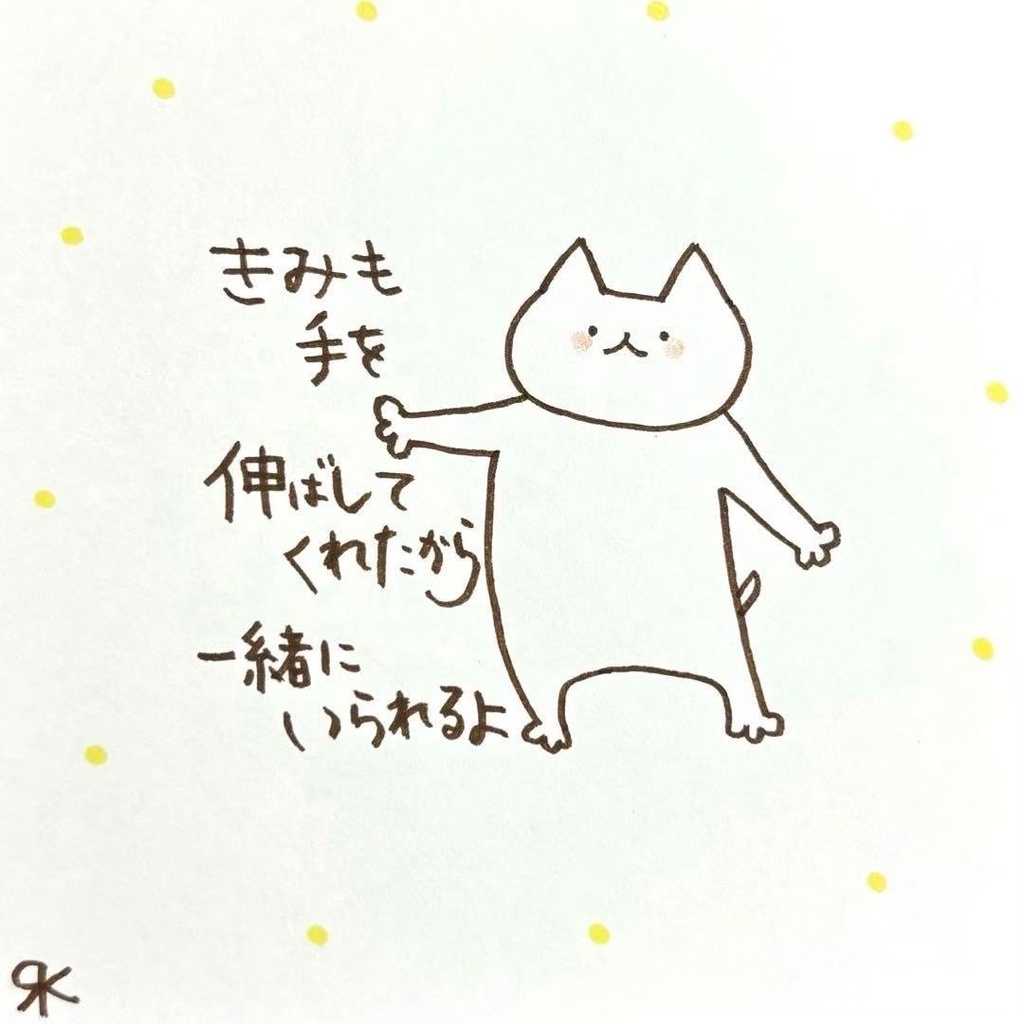 きみも
手を
伸ばして
くれたから
一緒に
いられるよ